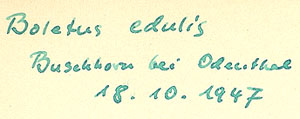 Boletus edulis
Buschhorn bei Odenthal
18.10.1947